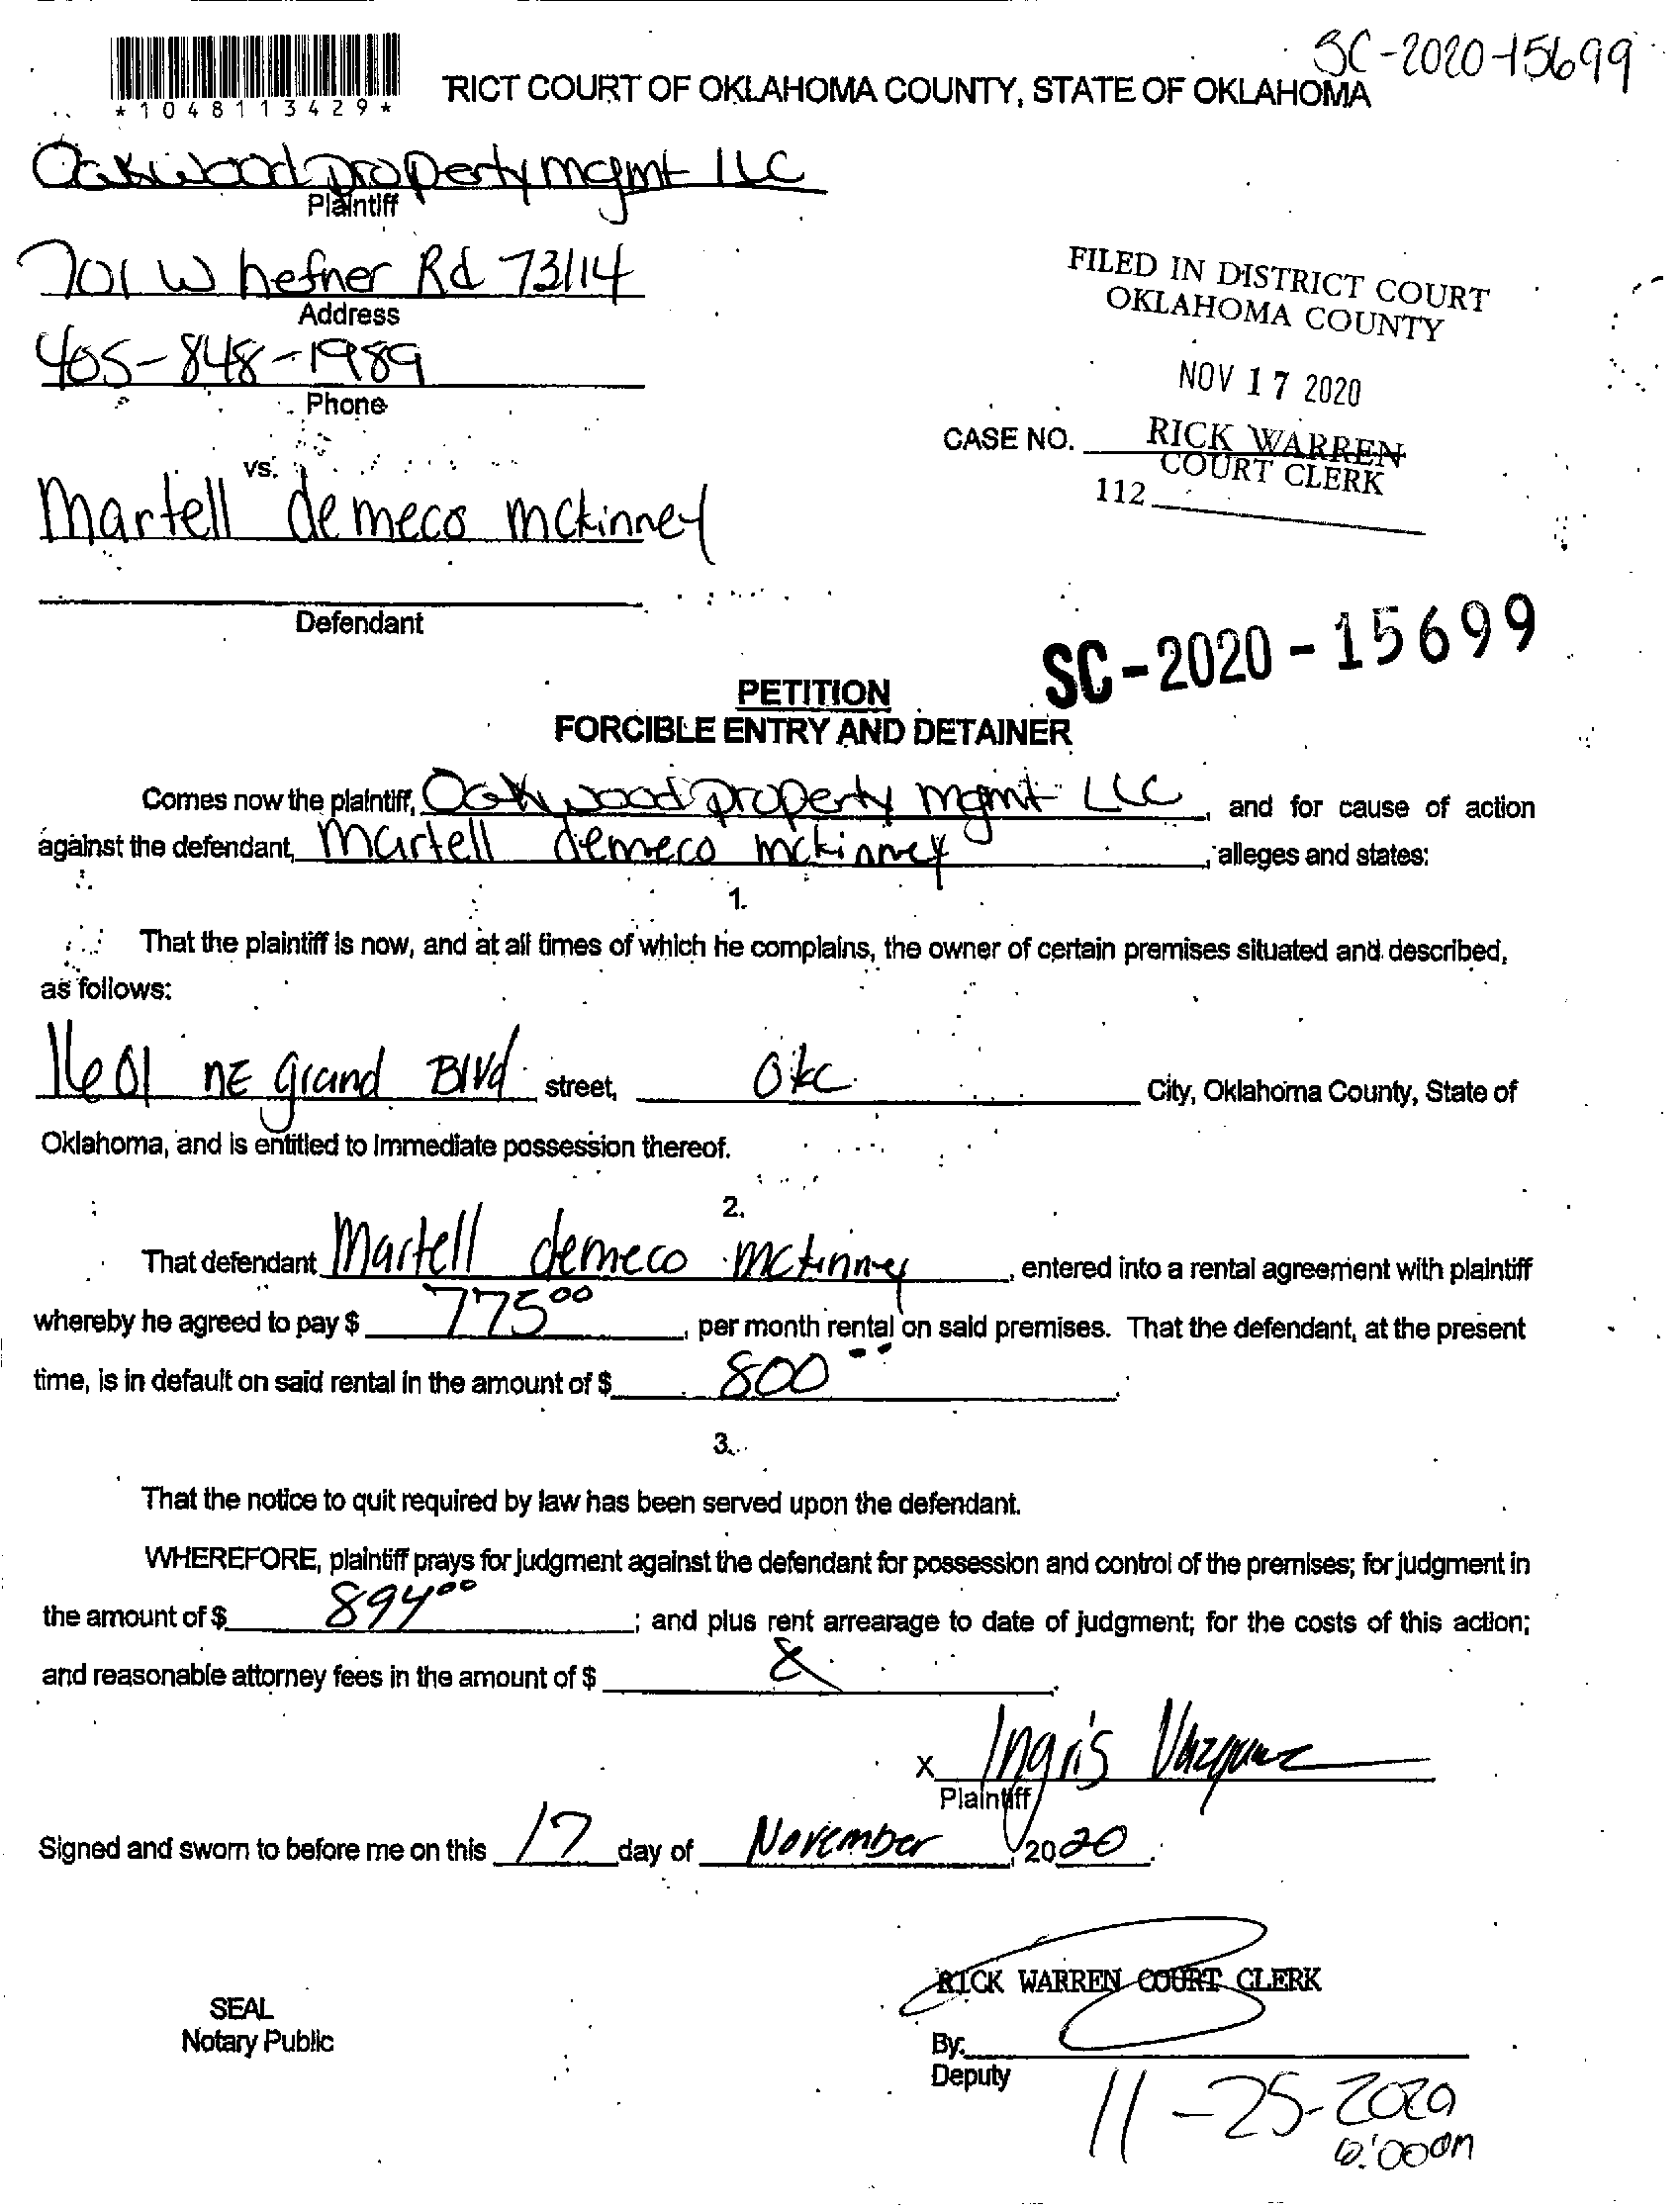 SC-2020-15699
*1048113429*
RICT COURT OF OKLAHOMA COUNTY, STATE OF OKLAHOMA
Oakwood property mgmt LLC
Plaintiff
701 W hefner Rd 73114
Address
405-848-1989
Phone
FILED IN DISTRICT COURT
OKLAHOMA COUNTY
NOV 17 2020
RICK WARREN
COURT CLERK
112
CASE NO.
vs.
Martell demeco mckinney
Defendant
SC-2020-15699
PETITION
FORCIBLE ENTRY AND DETAINER
Comes now the plaintiff, Oakwood property mgmt LLC, and for cause of action
against the defendant, Martell demeco mckinney, alleges and states:
1.
That the plaintiff is now, and at all times of which he complains, the owner of certain premises situated and described,
as follows:
1601 NE grand Blvd street, Okc City, Oklahoma County, State of
Oklahoma, and is entitled to immediate possession thereof.
2.
That defendant Martell demeco mckinney, entered into a rental agreement with plaintiff
whereby he agreed to pay $ 775 00, per month rental on said premises. That the defendant, at the present
time, is in default on said rental in the amount of $ 800.
3.
That the notice to quit required by law has been served upon the defendant.
WHEREFORE, plaintiff prays for judgment against the defendant for possession and control of the premises; for judgment in
the amount of $ 894 00; and plus rent arrearage to date of judgment; for the costs of this action;
and reasonable attorney fees in the amount of $
x Ingris Vazquez
Plaintiff
Signed and sworn to before me on this 17 day of November, 2020.
RICK WARREN COURT CLERK
SEAL
Notary Public
By:
Deputy
11-25-2020